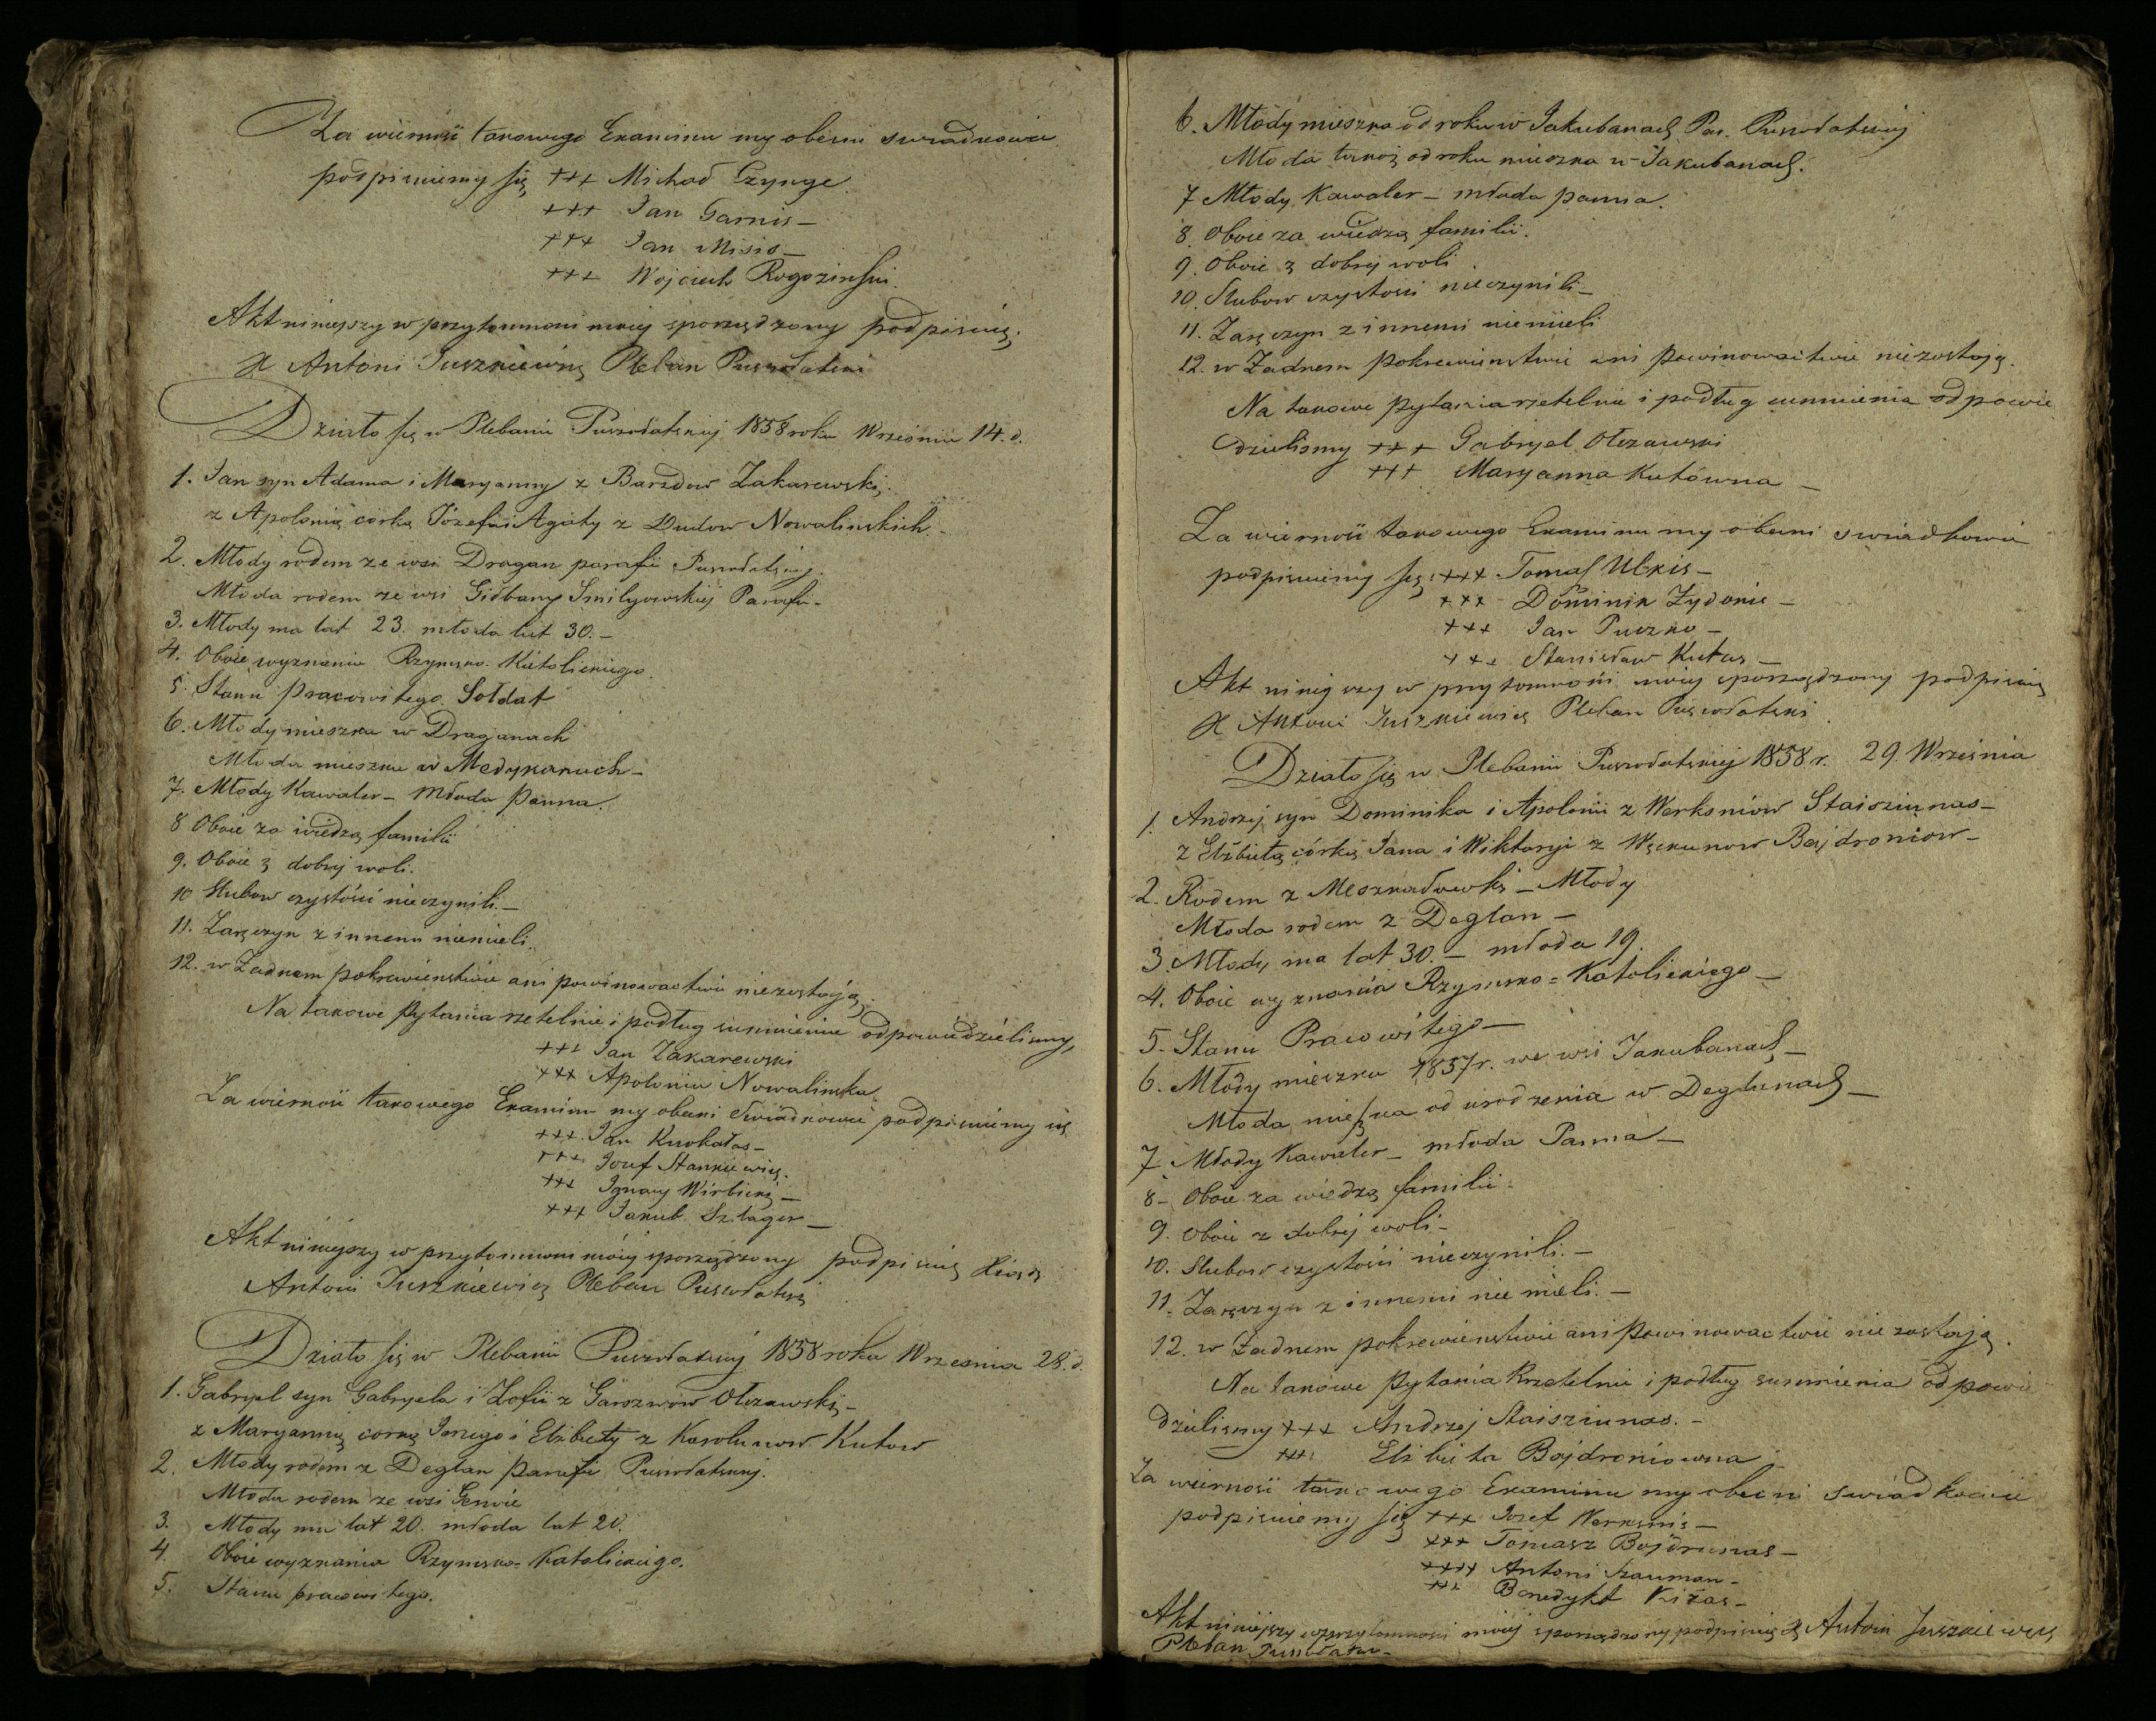 Za wierność takowego Examinu my obecni swiadkowie
podpisuiemy się +++ Michał Czynge.
+++ Jan Garnis –
+++ Jan Misis –
+++ Wojciech Rogozinski.
Akt ninieyszy w przytomności moiej sporządzony podpisuię.
X Antoni Juszkiewicz Pleban Puszołatski
Działo się w Plebanii Puszołatskiej 1858 roku Wrześniu 14. d.
1. Jan syn Adama i Maryanny z Barzdow Zakarewski,
z Apolonią corką Józefa i Agaty z Dudow Nowalinskich. –
2. Młody rodem ze wsi Dragan parafii Puszołatskiej.
Młoda rodem ze wsi Giłbany Smilgowskiej Parafii –
3. Młody ma lat 23. młoda lat 30. –
4. Oboie wyznania Rzymsko-Katolickiego.
5. Stanu pracowitego Sołdat
6. Młody mieszka w Draganach
Młoda mieszka w Medykanach –
7. Młody Kawaler – Młoda Panna.
8 Oboie za wiedzą familii
9. Oboie z dobrej woli.
10 Slubow czystości nieczynili. –
11. Zaręczyn z innemi niemieli.
12. w Żadnem pokrewienstwie ani powinowactwie niezostają.
Na takowe Pytania rzetelnie i podług sumnienia odpowiedzielismy,
+++ Jan Zakarewski
+++ Apolonia Nowalinska.
Za wierność takowego Examinu my obecni Swiadkowie podpisuiemy się
+++ Jan Kuokałas –
+++ Jozef Stankiewicz.
+++ Ignacy Wirbicki –
+++ Jakub Szlagier –
Akt ninieyszy w przytomności móiej sporządzony podpisuię Xiądz
Antoni Juszkiewicz Pleban Puszołatski
Działo się w Plebanii Puszołatskiej 1858 roku Wrzesnia 28. d.
1. Gabryel syn Gabryela i Zofii z Garszwow Olszawski, –
z Maryanną corką Jerzego i Elzbiety z Karolunow Kutow
2. Młody rodem z Deglan Parafii Puszołatskiej.
Młoda rodem ze wsi Gerwie
3. Młody ma lat 20. młoda lat 20.
4. Oboie wyznania Rzymsko-Katolickiego.
5. Stanu pracowitego.
6. Młody mieszka od roku w Jakubanach Par. Puszołatskiej
Młoda takoż od roku mieszka w Jakubanach.
7 Młody Kawaler – młoda panna.
8. Oboie za wiedzą familii.
9. Oboie z dobrej woli.
10. Slubow czystosci nieczynili –
11. Zaręczyn z innemi niemieli
12. w Żadnem Pokrewienstwie ani Powinowactwie niezostają.
Na takowe Pytania rzetelnie i podług sumnienia odpowie
dzielismy +++ Gabryel Olszawski
+++ Maryanna Kutówna –
Za wierność takowego Examinu my obecni swiadkowie
podpisuiemy się: +++ Tomasz Ulkis –
+++ Dominik Żydonis –
+++ Jan Puszko –
+++ Stanisław Kutus –
Akt ninieyszy w przytomności moiej sporządzony podpisuię
X Antoni Juszkiewicz Pleban Puszołatski.
Działo się w Plebanii Puszołatskiej 1858 r. 29. Wrzesnia
1. Andrzej syn Dominika i Apolonii z Werksniow Staisziunas –
z Elżbietą córką Jana i Wiktoryi z Węckunow Bojdroniow –
2. Rodem z Meszkadowki – Młody
Młoda rodem z Deglan –
3. Młody ma lat 30. – młoda 19.
4. Oboie wyznania Rzymsko=Katolickiego –
5. Stanu Pracowitego –
6. Młody mieszka 1857 r. we wsi Jakubanach –
Młoda mieszka od urodzenia w Deglanach –
7. Młody Kawaler – młoda Panna –
8 – Oboie za wiedzą familii.
9. oboie z dobrej woli –
10. Slubow czystości nieczynili. –
11. Zaręczyn z innemi nie mieli. –
12. w Żadnem pokrewienstwie ani Powinowactwie nie zostają.
Na takowe Pytania Rzetelnie i podług sumnienia odpowie
dzielismy +++ Andrzej Staisziunas. –
+++ Elzbieta Bojdroniowna
Za wierność takowego Examinu my obecni swiadkowie
podpisuiemy się +++ Jozef Werksnis –
+++ Tomasz Bojdrunas –
++++ Antoni Szauman –
+++ Benedykt Kiżas –
Akt ninieyszy w przytomności moiej sporządzony podpisuię X Antoni Juszkiewicz
Pleban Puszołatski –